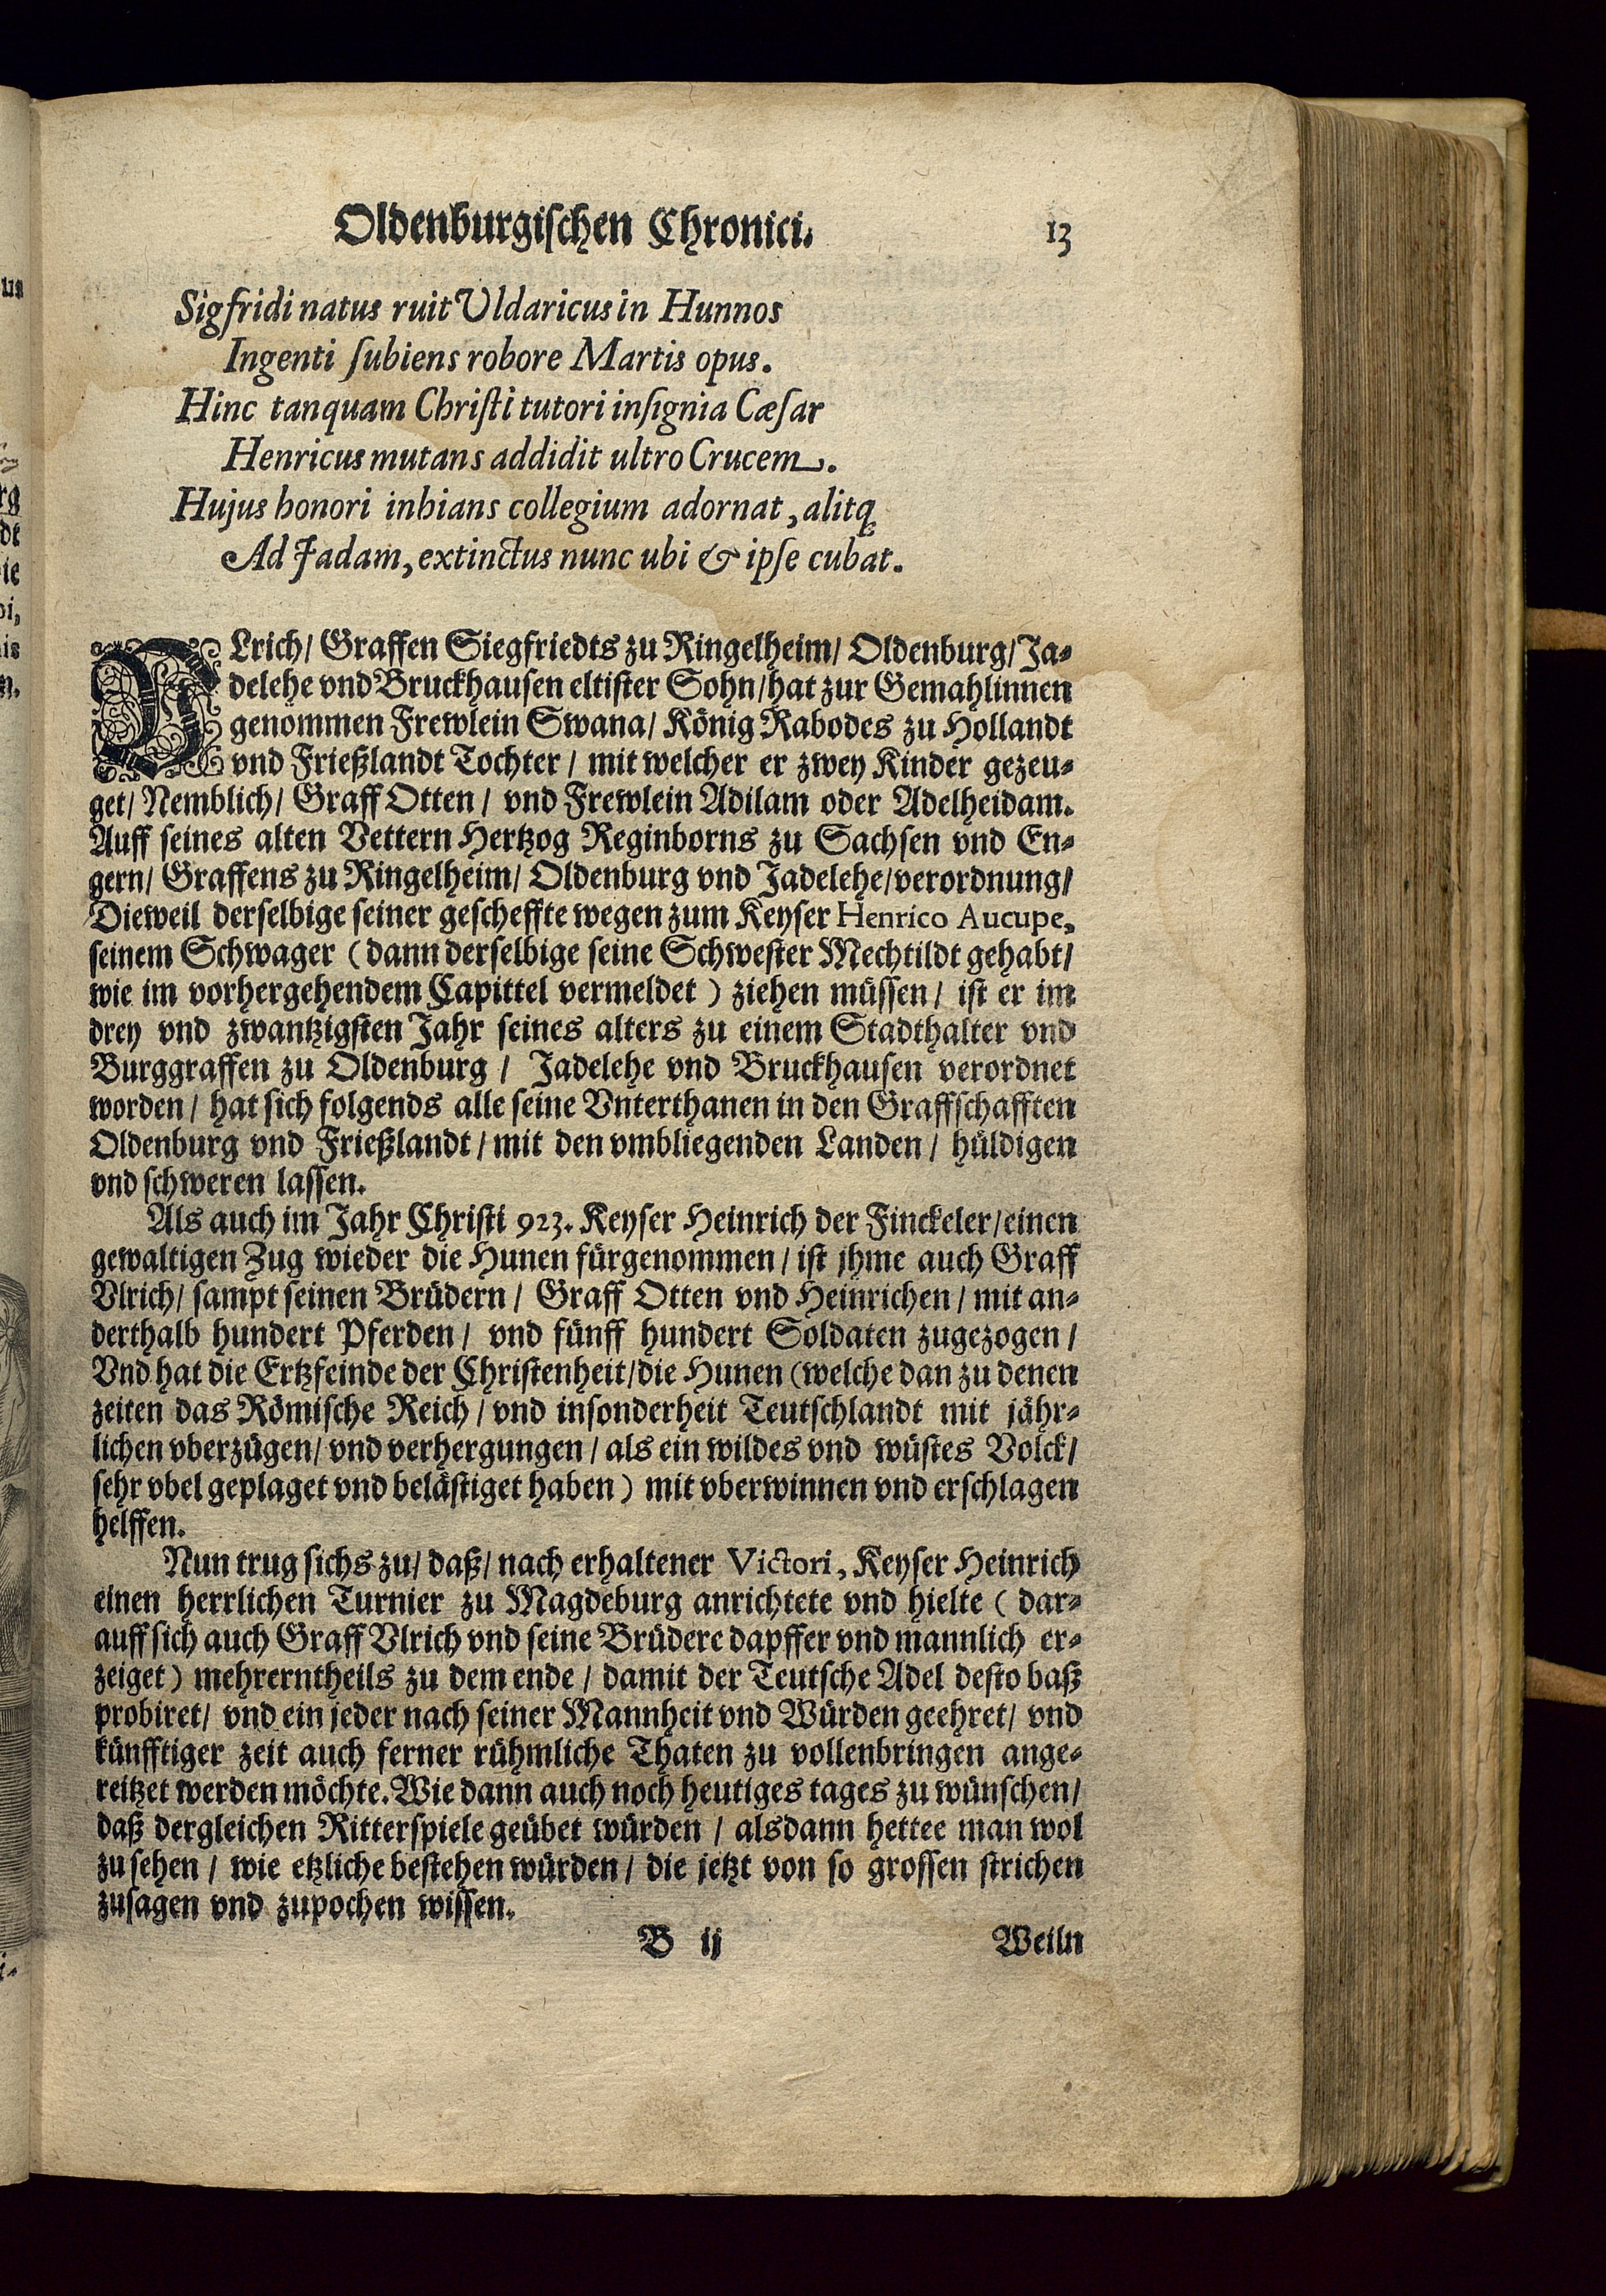 Oldenburgischen Chronici. 13
Sigfridi natus ruit Uldaricus in Hunnos
Ingenti ſubiens robore Martis opus.
Hinc tanquam Chriſti tutori inſignia Cæſar
Henricus mutans addidit ultro Crucem.
Hujus honori inhians collegium adornat, alitq;
Ad Jadam, extinctus nunc ubi & ipſe cubat.
VLrich/ Graffen Siegfriedts zu Ringelheim/ Oldenburg/ Ja-
delehe vnd Bruckhausen eltister Sohn/ hat zur Gemahlinnen
genommen Frewlein Swana/ König Rabodes zu Hollandt
vnd Frießlandt Tochter / mit welcher er zwey Kinder gezeu-
get/ Nemblich/ Graff Otten / vnd Frewlein Adilam oder Adelheidam.
Auff seines alten Vettern Hertzog Reginborns zu Sachsen vnd En-
gern/ Graffens zu Ringelheim/ Oldenburg vnd Jadelehe/ verordnung/
Dieweil derselbige seiner gescheffte wegen zum Keyser Henrico Aucupe,
seinem Schwager (dann derselbige seine Schwester Mechtildt gehabt/
wie im vorhergehendem Capittel vermeldet) ziehen müssen/ ist er im
drey vnd zwantzigsten Jahr seines alters zu einem Stadthalter vnd
Burggraffen zu Oldenburg / Jadelehe vnd Bruckhausen verordnet
worden/ hat sich folgends alle seine Vnterthanen in den Graffschafften
Oldenburg vnd Frießlandt/ mit den vmbliegenden Landen / hüldigen
vnd schweren lassen.
Als auch im Jahr Christi 923. Keyser Heinrich der Finckeler/ einen
gewaltigen Zug wieder die Hunen fürgenommen/ ist jhme auch Graff
Vlrich/ sampt seinen Brüdern / Graff Otten vnd Heinrichen/ mit an-
derthalb hundert Pferden/ vnd fünff hundert Soldaten zugezogen/
Vnd hat die Ertzfeinde der Christenheit/ die Hunen (welche dan zu denen
zeiten das Römische Reich/ vnd insonderheit Teutschlandt mit jähr-
lichen vberzügen/ vnd verhergungen/ als ein wildes vnd wüstes Volck/
sehr vbel geplaget vnd belästiget haben) mit vberwinnen vnd erschlagen
helffen.
Nun trug sichs zu/ daß/ nach erhaltener Victori, Keyser Heinrich
einen herrlichen Turnier zu Magdeburg anrichtete vnd hielte (dar-
auff sich auch Graff Vlrich vnd seine Brüdere dapffer vnd mannlich er-
zeiget) mehrerntheils zu dem ende/ damit der Teutsche Adel desto baß
probiret/ vnd ein jeder nach seiner Mannheit vnd Würden geehret/ vnd
künfftiger zeit auch ferner rühmliche Thaten zu vollenbringen ange-
reitzet werden möchte. Wie dann auch noch heutiges tages zu wünschen/
daß dergleichen Ritterspiele geübet würden / alsdann hettee man wol
zu sehen / wie etzliche bestehen würden/ die jetzt von so grossen strichen
zusagen vnd zupochen wissen.
B ij Weiln